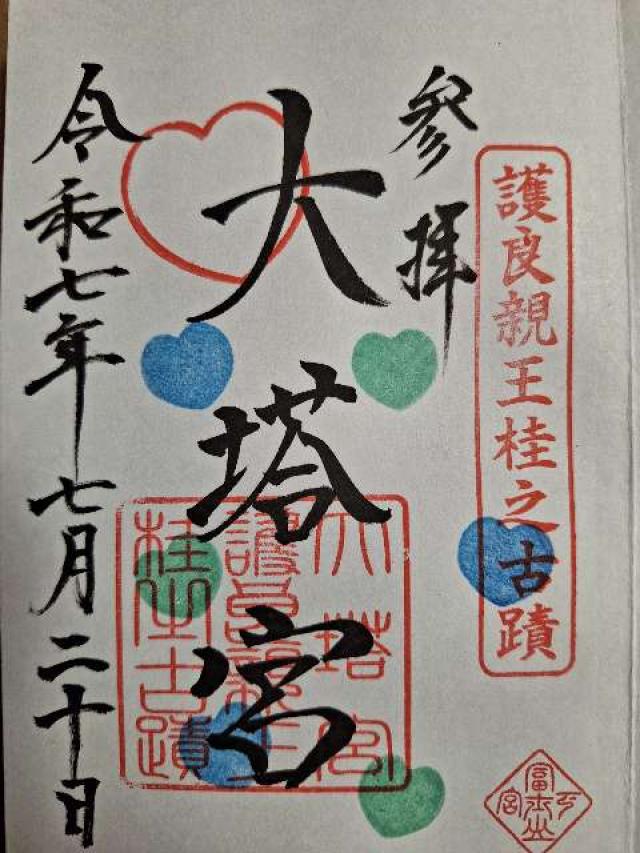 護良親王桂之古蹟
参拝
大塔宮
大塔宮
護良親王
桂之古蹟
令和七年七月二十日